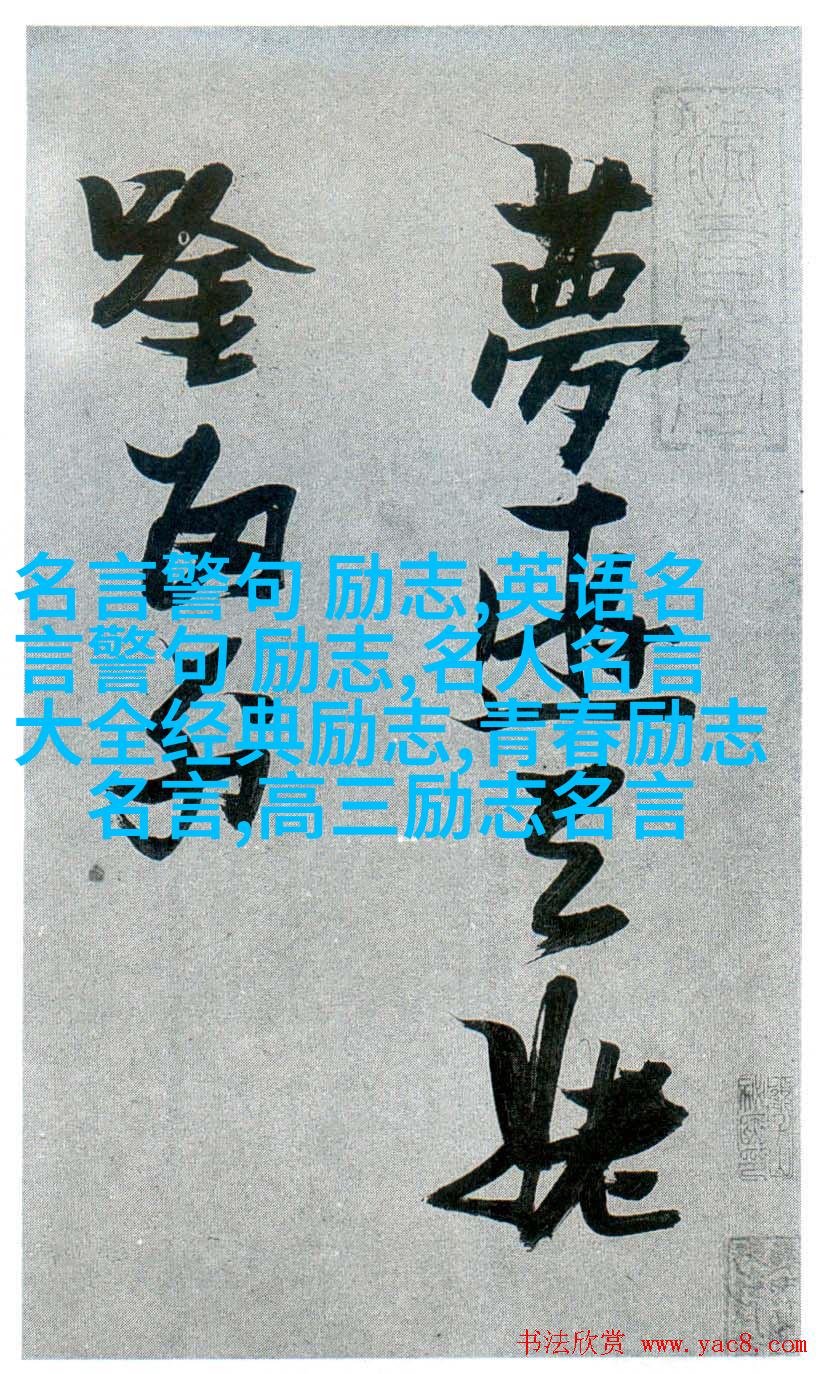 夢遊天姥
唫留別
名言警句 励志,英语名
言警句 励志,名人名言
大全经典励志,青春励志
名言,高三励志名言
书法欣赏 www.yac8.com